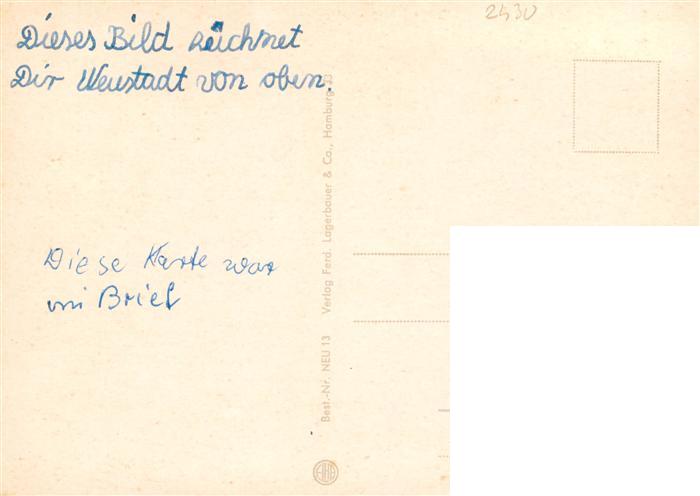 2430
Dieses Bild zeichnet
Dir Neustadt von oben.
Diese Karte war
im Brief
Best.-Nr. NEU 13 Verlag Ferd. Lagerbauer & Co., Hamburg 23